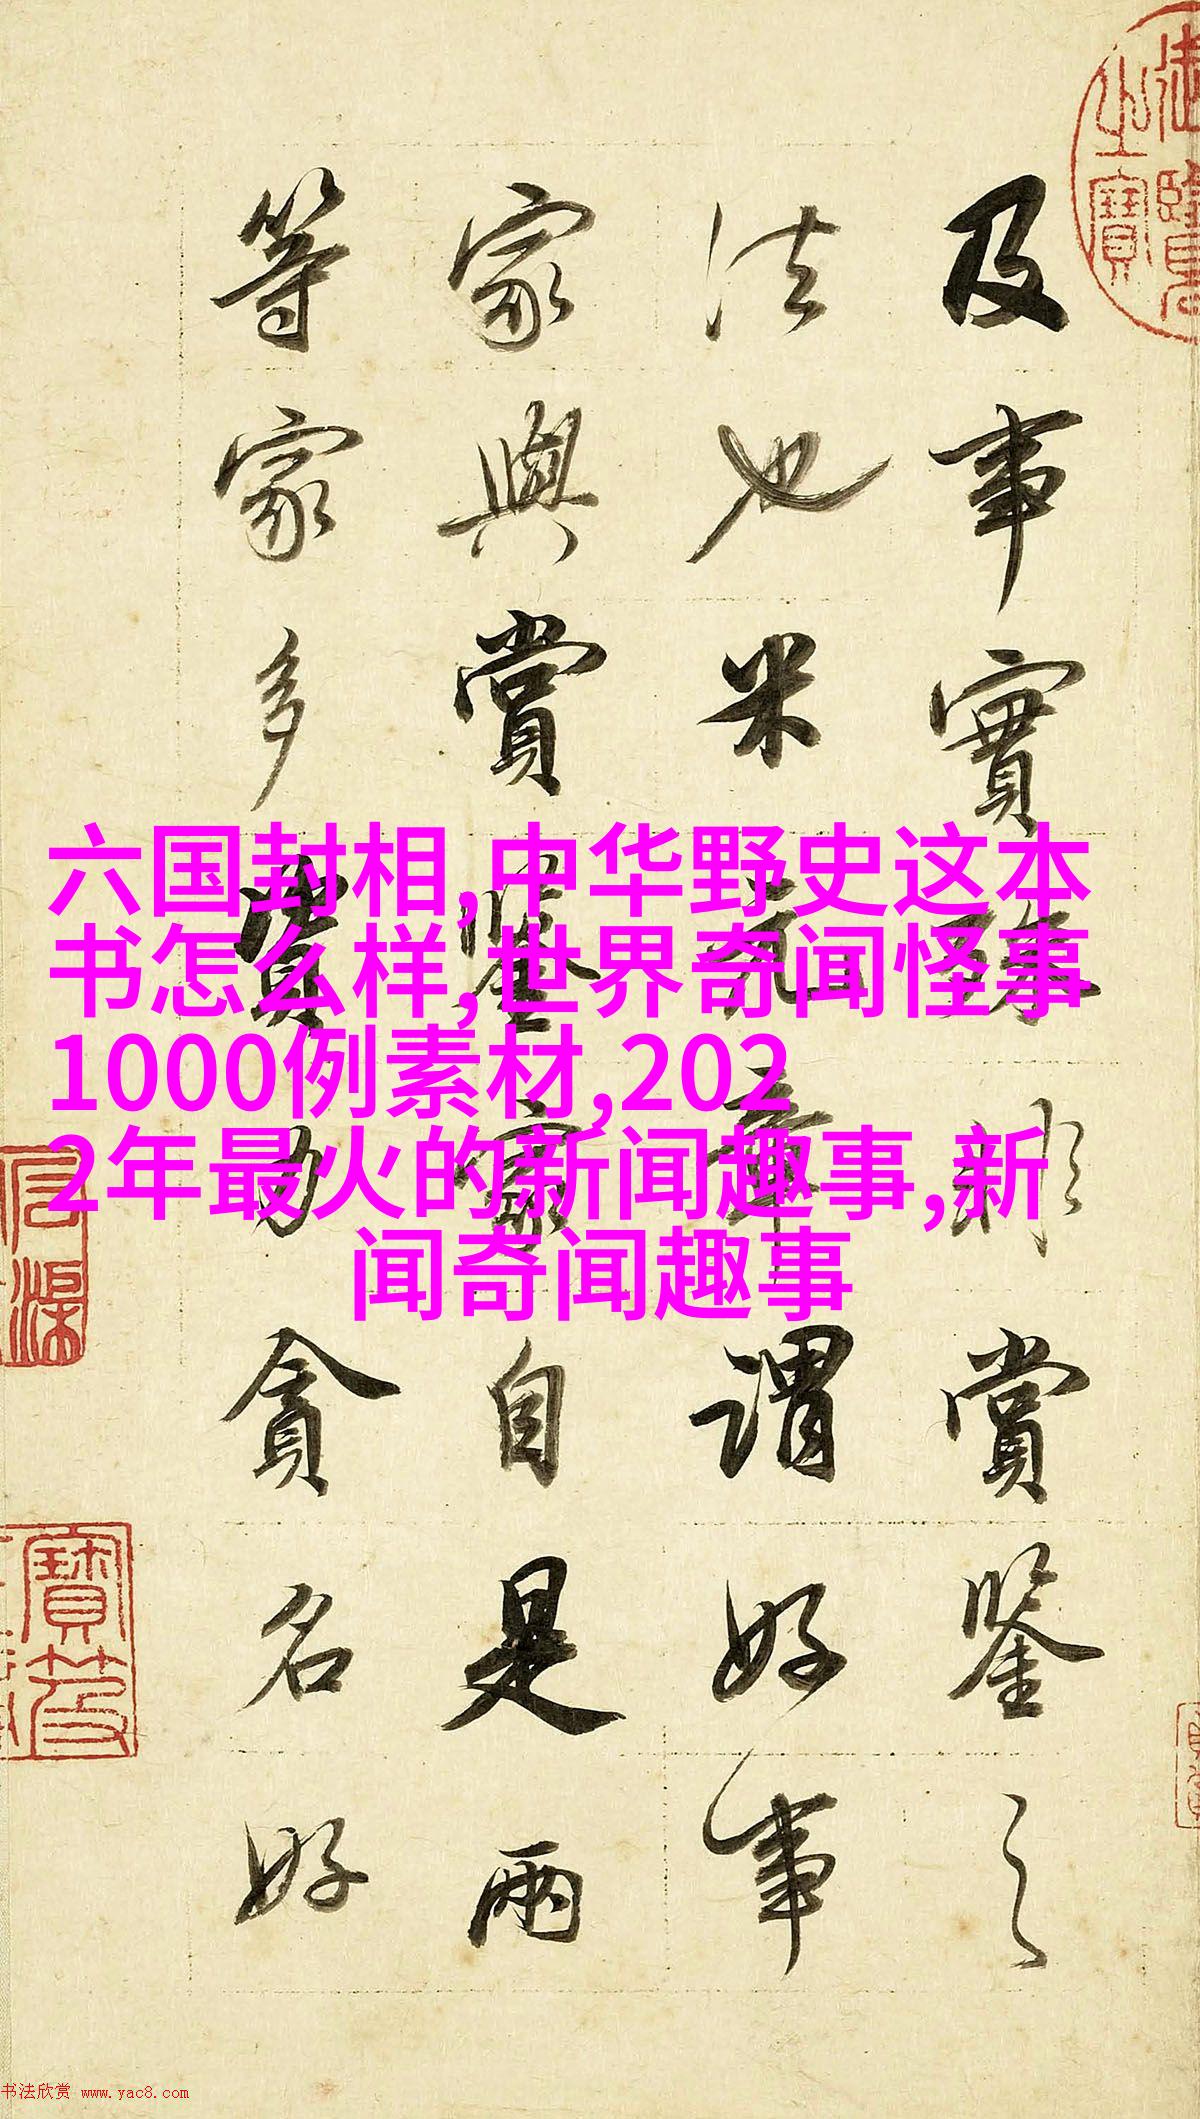 御覽之寶
及事實殊非賞鑒之
法也米元章謂好事
家與賞鑒家自是兩
等家多資力貪名好
六国封相,中华野史这本
书怎么样,世界奇闻怪事
1000例素材,202
2年最火的新闻趣事,新
闻奇闻趣事
书法欣赏 www.yac8.com